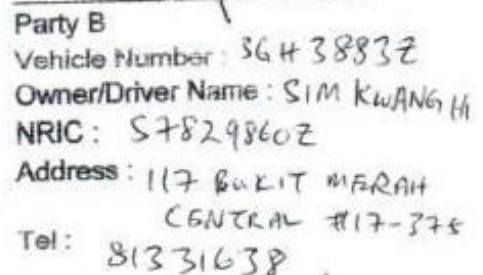 Party B
Vehicle Number : SGH3883Z
Owner/Driver Name : SIM KWANG HI
NRIC : S7829860Z
Address : 117 BUKIT MERAH
CENTRAL #17-375
Tel : 81331638